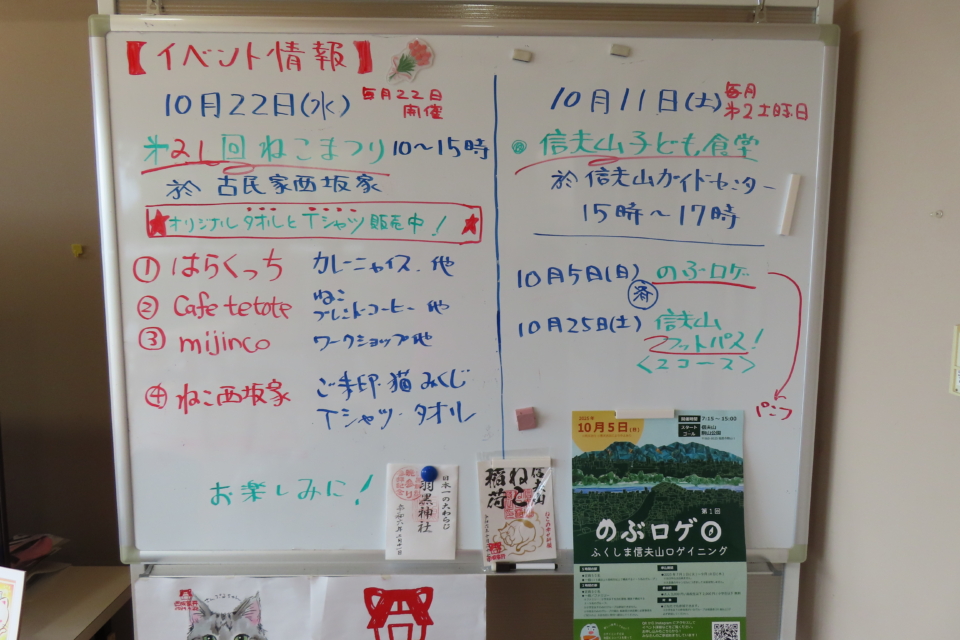 【イベント情報】
10月22日(水)
毎月22日
開催
オ21回 ねこまつり 10～15時
於 古民家西坂家
★オリジナル タオルとTシャツ販売中！★
① はらくっち カレーニャイス、他
② Cafe tetote ねこ
ブレンドコーヒー 他
③ mijinco ワークショップ他
④ ねこ西坂家 ご朱印・猫みくじ
Tシャツ・タオル
お楽しみに！
10月11日(土)
毎月
オ2土曜日
信夫山子ども食堂
於 信夫山ガイドセンター
15時～17時
10月5日(日) のぶロゲ
済
10月25日(土) 信夫山
フットパス！
<2コース>
パンフ
日本一の大わらじ
羽黒神社
信夫山
ねこ
稲荷
10月5日(日)
7:15～15:00
スタート
ゴール
信夫山
第1回
のぶロゲ
ふくしま信夫山ロゲイニング